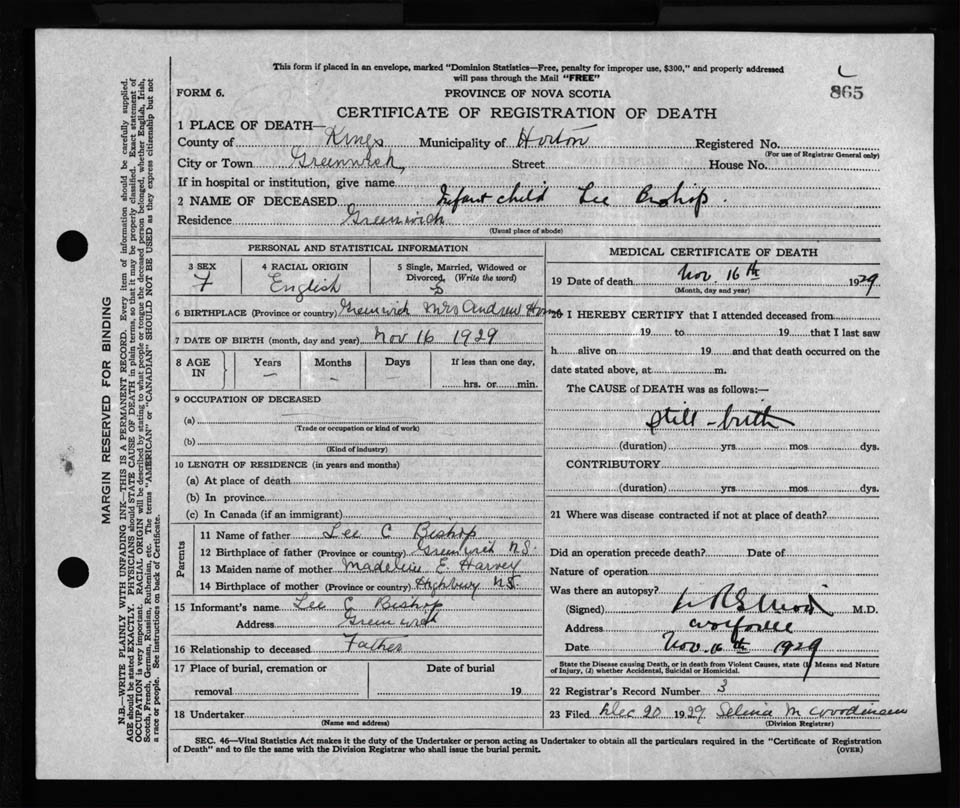 This form if placed in an envelope, marked "Dominion Statistics—Free, penalty for improper use, $300," and properly addressed
will pass through the Mail "FREE"
L
865
FORM 6.
PROVINCE OF NOVA SCOTIA
CERTIFICATE OF REGISTRATION OF DEATH
1 PLACE OF DEATH—
County of Kings Municipality of Horton Registered No.
(For use of Registrar General only)
City or Town Greenwich, Street House No.
If in hospital or institution, give name
2 NAME OF DECEASED Infant child Lee Bishop.
Residence Greenwich
(Usual place of abode)
PERSONAL AND STATISTICAL INFORMATION
3 SEX F
4 RACIAL ORIGIN English
5 Single, Married, Widowed or Divorced, (Write the word) S
6 BIRTHPLACE (Province or country) Greenwich Mrs Andrew
7 DATE OF BIRTH (month, day and year) Nov 16 1929
8 AGE IN Years — Months — Days — If less than one day, hrs. or min.
9 OCCUPATION OF DECEASED
(a)
(Trade or occupation or kind of work)
(b)
(Kind of industry)
10 LENGTH OF RESIDENCE (in years and months)
(a) At place of death
(b) In province
(c) In Canada (if an immigrant)
Parents
11 Name of father Lee C Bishop
12 Birthplace of father (Province or country) Greenwich N.S.
13 Maiden name of mother Madeline E. Harvey
14 Birthplace of mother (Province or country) Highbury N.S.
15 Informant's name Lee C Bishop
Address Greenwich
16 Relationship to deceased Father
17 Place of burial, cremation or removal
Date of burial
19
18 Undertaker
(Name and address)
MEDICAL CERTIFICATE OF DEATH
19 Date of death Nov. 16th 1929
(Month, day and year)
20 I HEREBY CERTIFY that I attended deceased from
19 to 19 that I last saw
h alive on 19 and that death occurred on the
date stated above, at m.
The CAUSE of DEATH was as follows:—
Still-birth
(duration) yrs. mos. dys.
CONTRIBUTORY
(duration) yrs. mos. dys.
21 Where was disease contracted if not at place of death?
Did an operation precede death? Date of
Nature of operation
Was there an autopsy?
(Signed) M.D.
Address Wolfville
Date Nov. 16th 1929
State the Disease causing Death, or in death from Violent Causes, state (1) Means and Nature
of Injury, (2) whether Accidental, Suicidal or Homicidal.
22 Registrar's Record Number 3
23 Filed Dec 20 1929 Selina M
(Division Registrar)
SEC. 46—Vital Statistics Act makes it the duty of the Undertaker or person acting as Undertaker to obtain all the particulars required in the "Certificate of Registration
of Death" and to file the same with the Division Registrar who shall issue the burial permit.
(OVER)
MARGIN RESERVED FOR BINDING
N.B.—WRITE PLAINLY WITH UNFADING INK—THIS IS A PERMANENT RECORD. Every item of information should be carefully supplied.
AGE should be stated EXACTLY. PHYSICIANS should STATE CAUSE OF DEATH in plain terms, so that it may be properly classified. Exact statement of
OCCUPATION is very important. RACIAL ORIGIN will be described by stating to what people or tongue the deceased person belonged, whether English, Irish,
Scotch, French, German, Russian, Ruthenian, etc. The terms "AMERICAN" or "CANADIAN" SHOULD NOT BE USED as they express citizenship but not
a race or people. See instructions on back of Certificate.